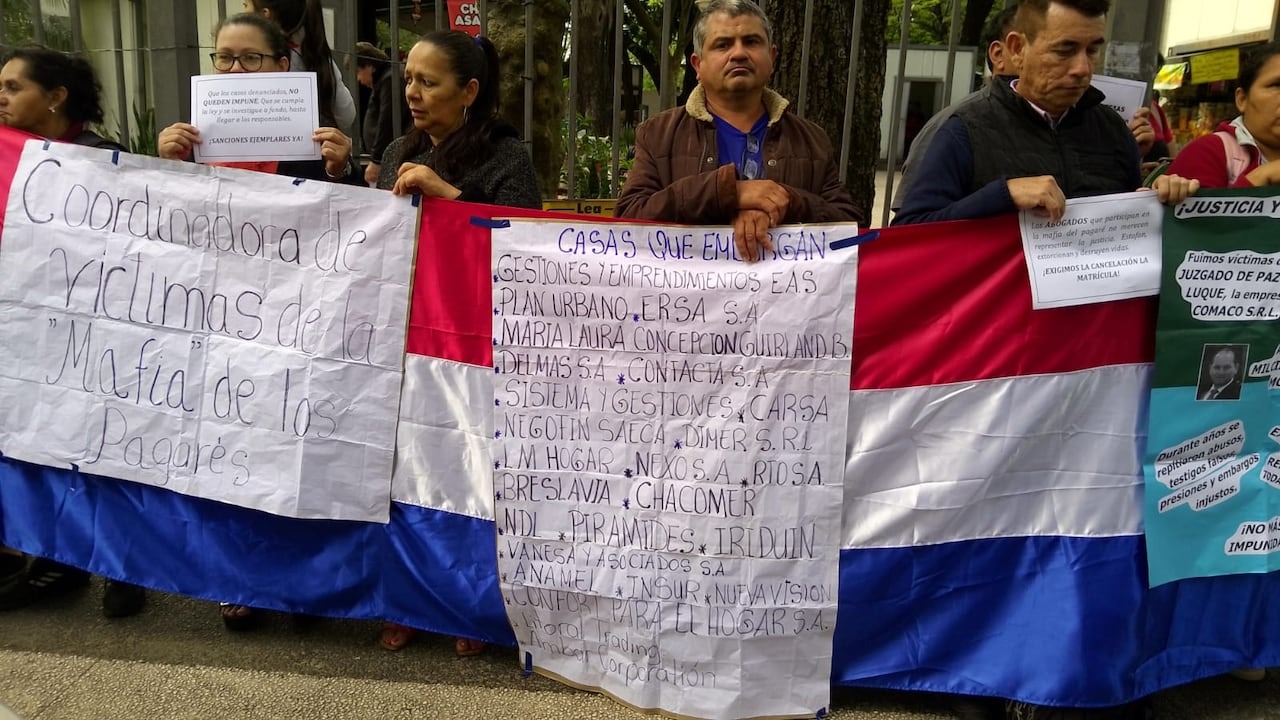 CH
ASA
Que los casos denunciados, NO
QUEDEN IMPUNE. Que se cumpla
la ley y se investigue a fondo, hasta
llegar a los responsables.
¡SANCIONES EJEMPLARES YA!
Coordinadora de
victimas de la
"Mafia" de los
Pagarés
Lea
CASAS QUE EMBARGAN
GESTIONES Y EMPRENDIMIENTOS E.A.S
*PLAN URBANO *ERSA S.A
*MARIA LAURA CONCEPCION GUIRLAND B.
*DELMAS S.A *CONTACTA S.A
*SISTEMA Y GESTIONES *CARSA
*NEGOFIN SAECA *DIMER S.R.L
*LM HOGAR *NEXO S.A *RTOSA
*BRESLAVIA *CHACOMER
NDL *PIRAMIDES *IRIDUIN
*VANESA Y ASOCIADOS S.A
*ANAMEL *INSUR *NUEVA VISION
*CONFORT PARA EL HOGAR S.A.
*Litoral Trading
*Amber Corporatión
Los ABOGADOS que participan en
la mafia del pagaré no merecen
representar la justicia. Estafan,
extorcionan y destruyen vidas.
¡EXIGIMOS LA CANCELACIÓN LA
MATRÍCULA!
¡JUSTICIA Y
Fuimos víctimas d
JUZGADO DE PAZ
LUQUE, la empres
COMACO S.R.L.
Durante años se
repitieron abusos,
testigos falsos,
presiones y embargos
injustos.
¡NO MÁS
IMPUNIDA